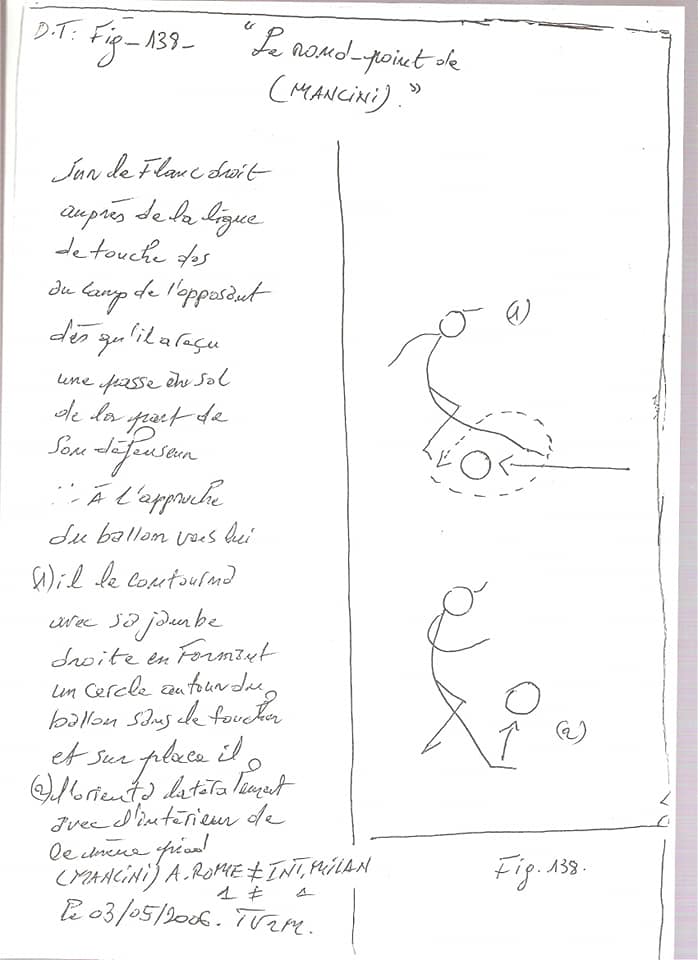 D.T: Fig-138-
"Le rond-point de
(MANCINI)."
Sur le Flanc droit
auprès de la ligne
de touche des
du camp de l'opposant
dès qu'il a reçu
une passe au sol
de la part de
Son défenseur
∴- À l'approche
du ballon vers lui
(1) il le contourna
avec sa jambe
droite en Formant
un cercle autour du
ballon sans le toucher
et sur place il
(2) l'orienta latéralement
avec l'intérieur de
ce même pied
(MANCINI) A.ROME ≠ INT,MILAN
1 ≠ 1
Le 03/05/2006. TV2M.
(1)
(2)
Fig.138.